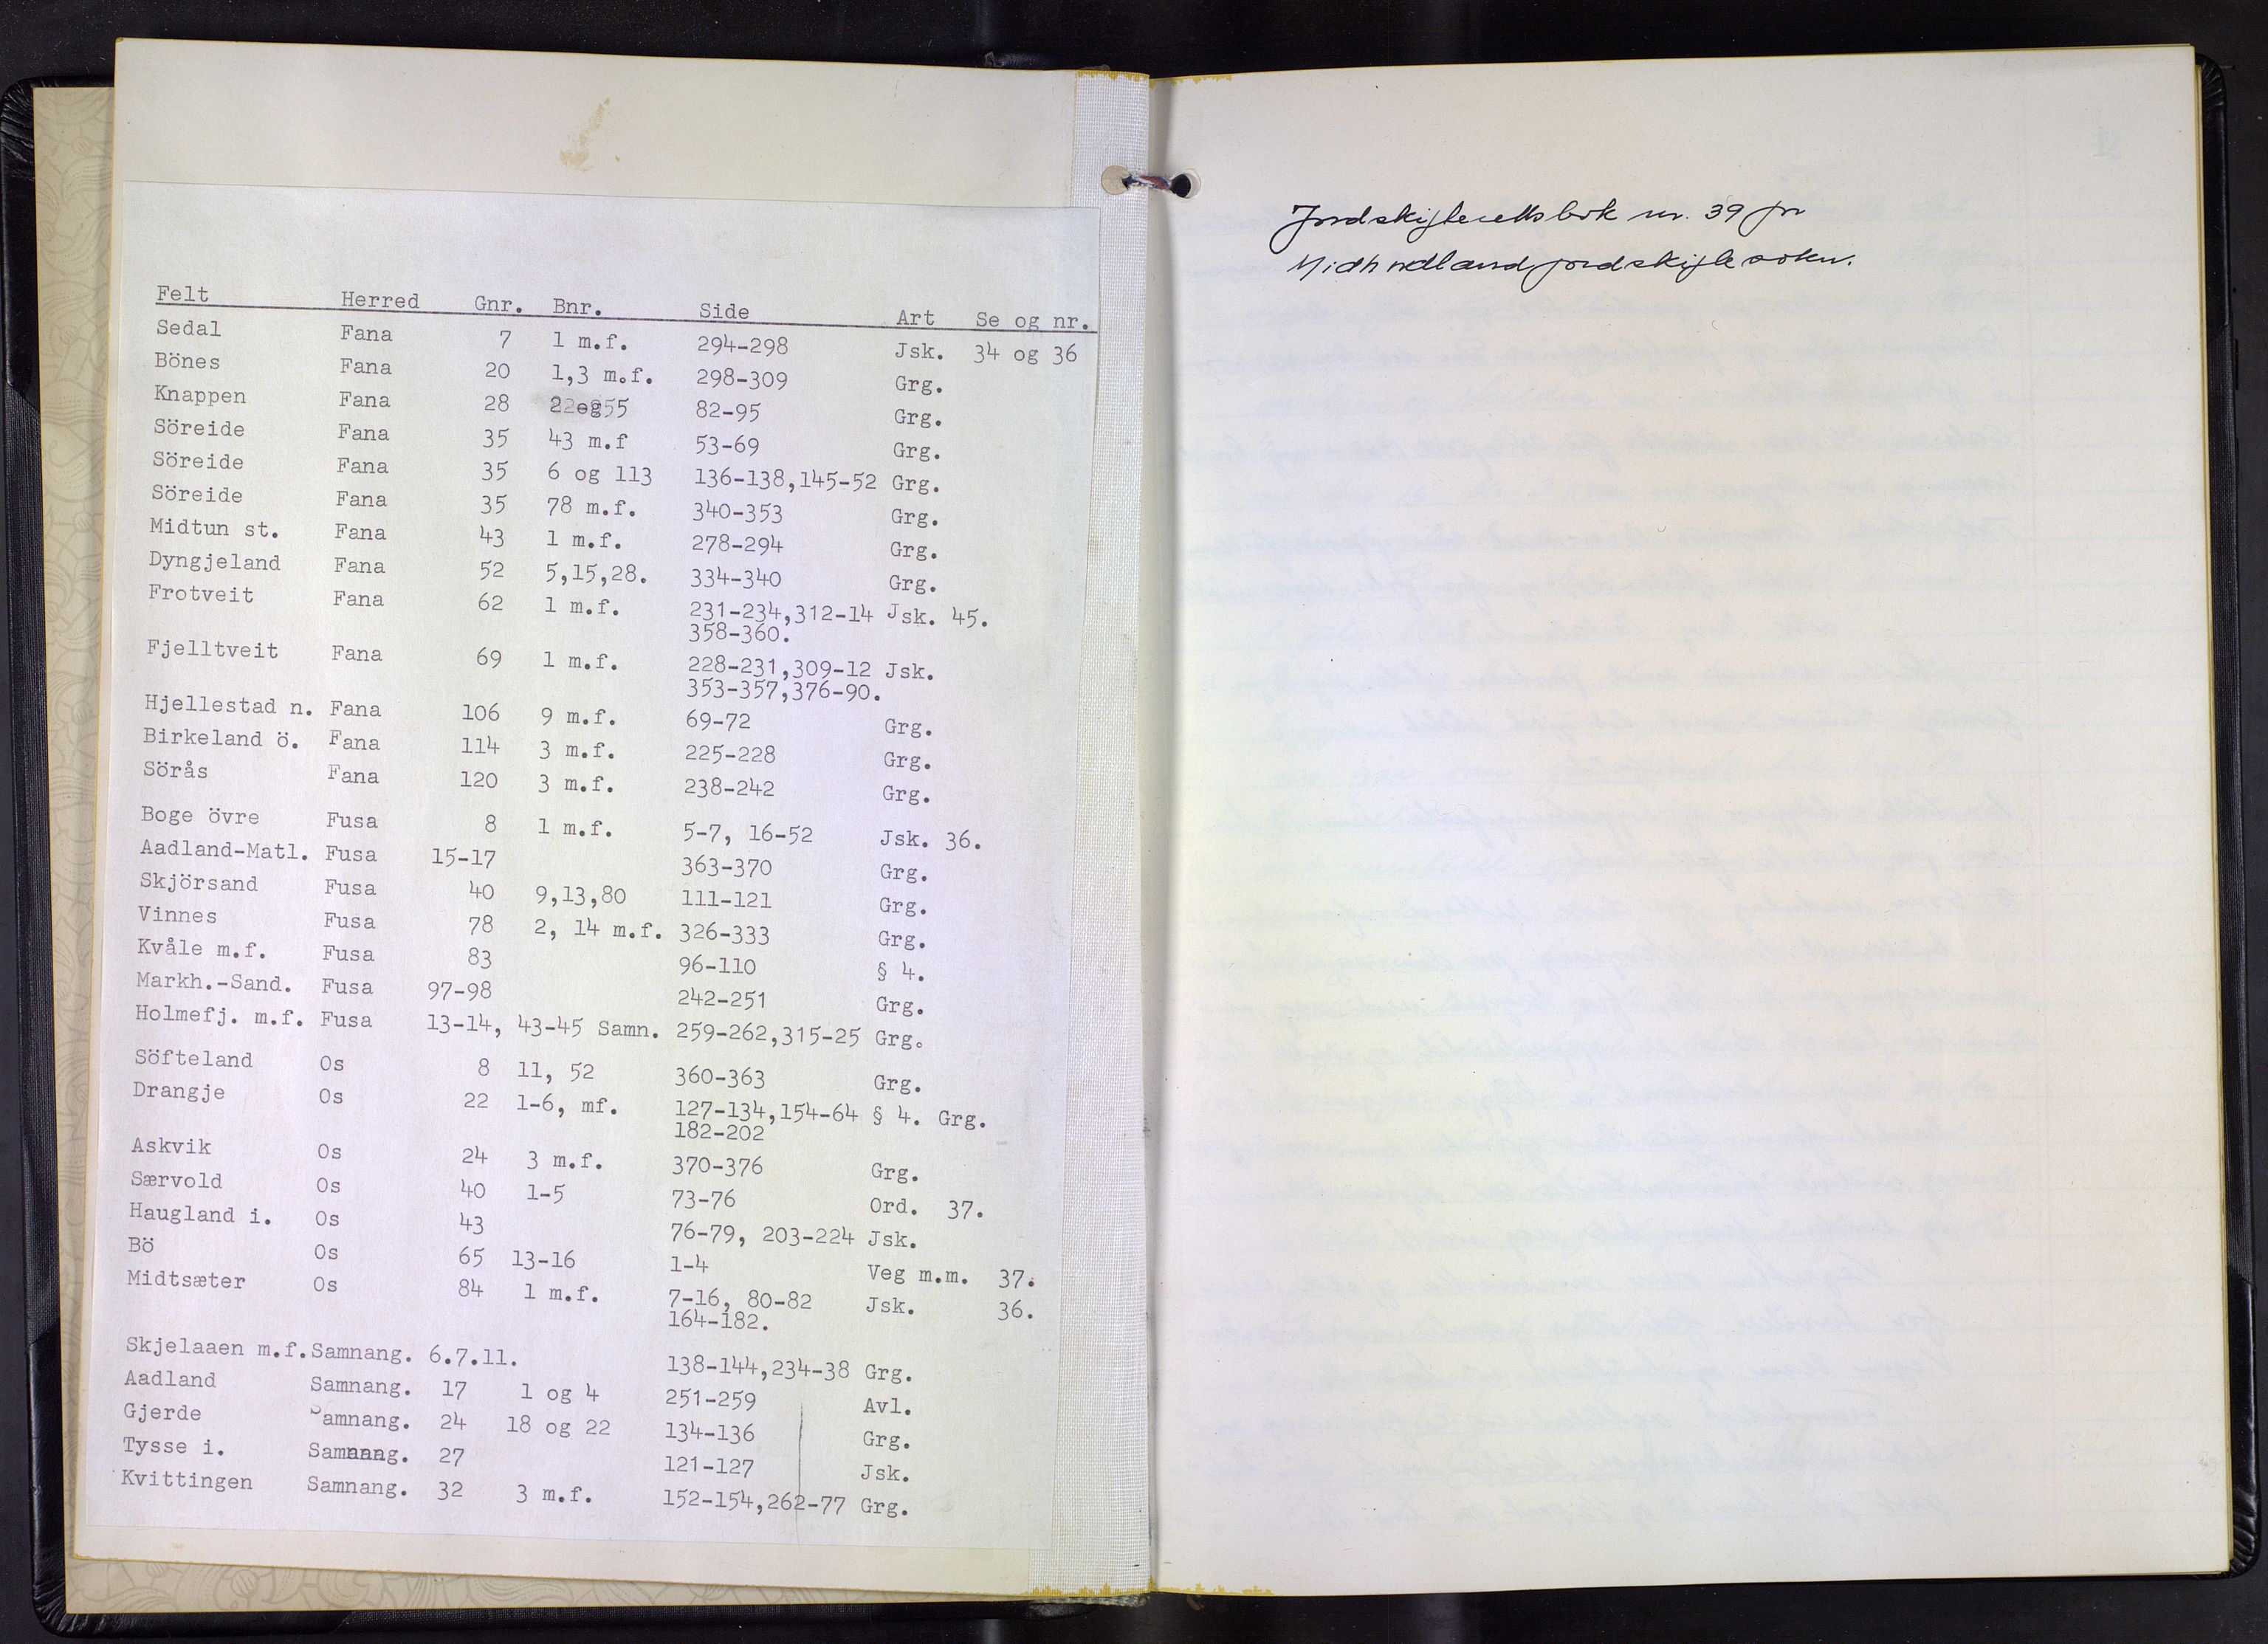 Felt Herred Gnr. Bnr. Side Art Se og nr.
Sedal Fana 7 1 m.f. 294-298 Jsk. 34 og 36
Bönes Fana 20 1,3 m.f. 298-309 Grg.
Knappen Fana 28 82-95 Grg.
Söreide Fana 35 43 m.f 53-69 Grg.
Söreide Fana 35 6 og 113 136-138,145-52 Grg.
Söreide Fana 35 78 m.f. 340-353 Grg.
Midtun st. Fana 43 1 m.f. 278-294 Grg.
Dyngjeland Fana 52 5,15,28. 334-340 Grg.
Frotveit Fana 62 1 m.f. 231-234,312-14 Jsk. 45.
358-360.
Fjelltveit Fana 69 1 m.f. 228-231,309-12 Jsk.
353-357,376-90.
Hjellestad n. Fana 106 9 m.f. 69-72 Grg.
Birkeland ö. Fana 114 3 m.f. 225-228 Grg.
Sörås Fana 120 3 m.f. 238-242 Grg.
Boge övre Fusa 8 1 m.f. 5-7, 16-52 Jsk. 36.
Aadland-Matl. Fusa 15-17 363-370 Grg.
Skjörsand Fusa 40 9,13,80 111-121 Grg.
Vinnes Fusa 78 2, 14 m.f. 326-333 Grg.
Kvåle m.f. Fusa 83 96-110 § 4.
Markh.-Sand. Fusa 97-98 242-251 Grg.
Holmefj. m.f. Fusa 13-14, 43-45 Samn. 259-262,315-25 Grg.
Söfteland Os 8 11, 52 360-363 Grg.
Drangje Os 22 1-6, mf. 127-134,154-64 § 4. Grg.
182-202
Askvik Os 24 3 m.f. 370-376 Grg.
Særvold Os 40 1-5 73-76 Ord. 37.
Haugland i. Os 43 76-79, 203-224 Jsk.
Bö Os 65 13-16 1-4 Veg m.m. 37.
Midtsæter Os 84 1 m.f. 7-16, 80-82 Jsk. 36.
164-182.
Skjelaaen m.f. Samnang. 6.7.11. 138-144,234-38 Grg.
Aadland Samnang. 17 1 og 4 251-259 Avl.
Gjerde Samnang. 24 18 og 22 134-136 Grg.
Tysse i. Samnang. 27 121-127 Jsk.
Kvittingen Samnang. 32 3 m.f. 152-154,262-77 Grg.
Jordskifterettsbok nr. 39 for
Midhordland jordskiftesokn.